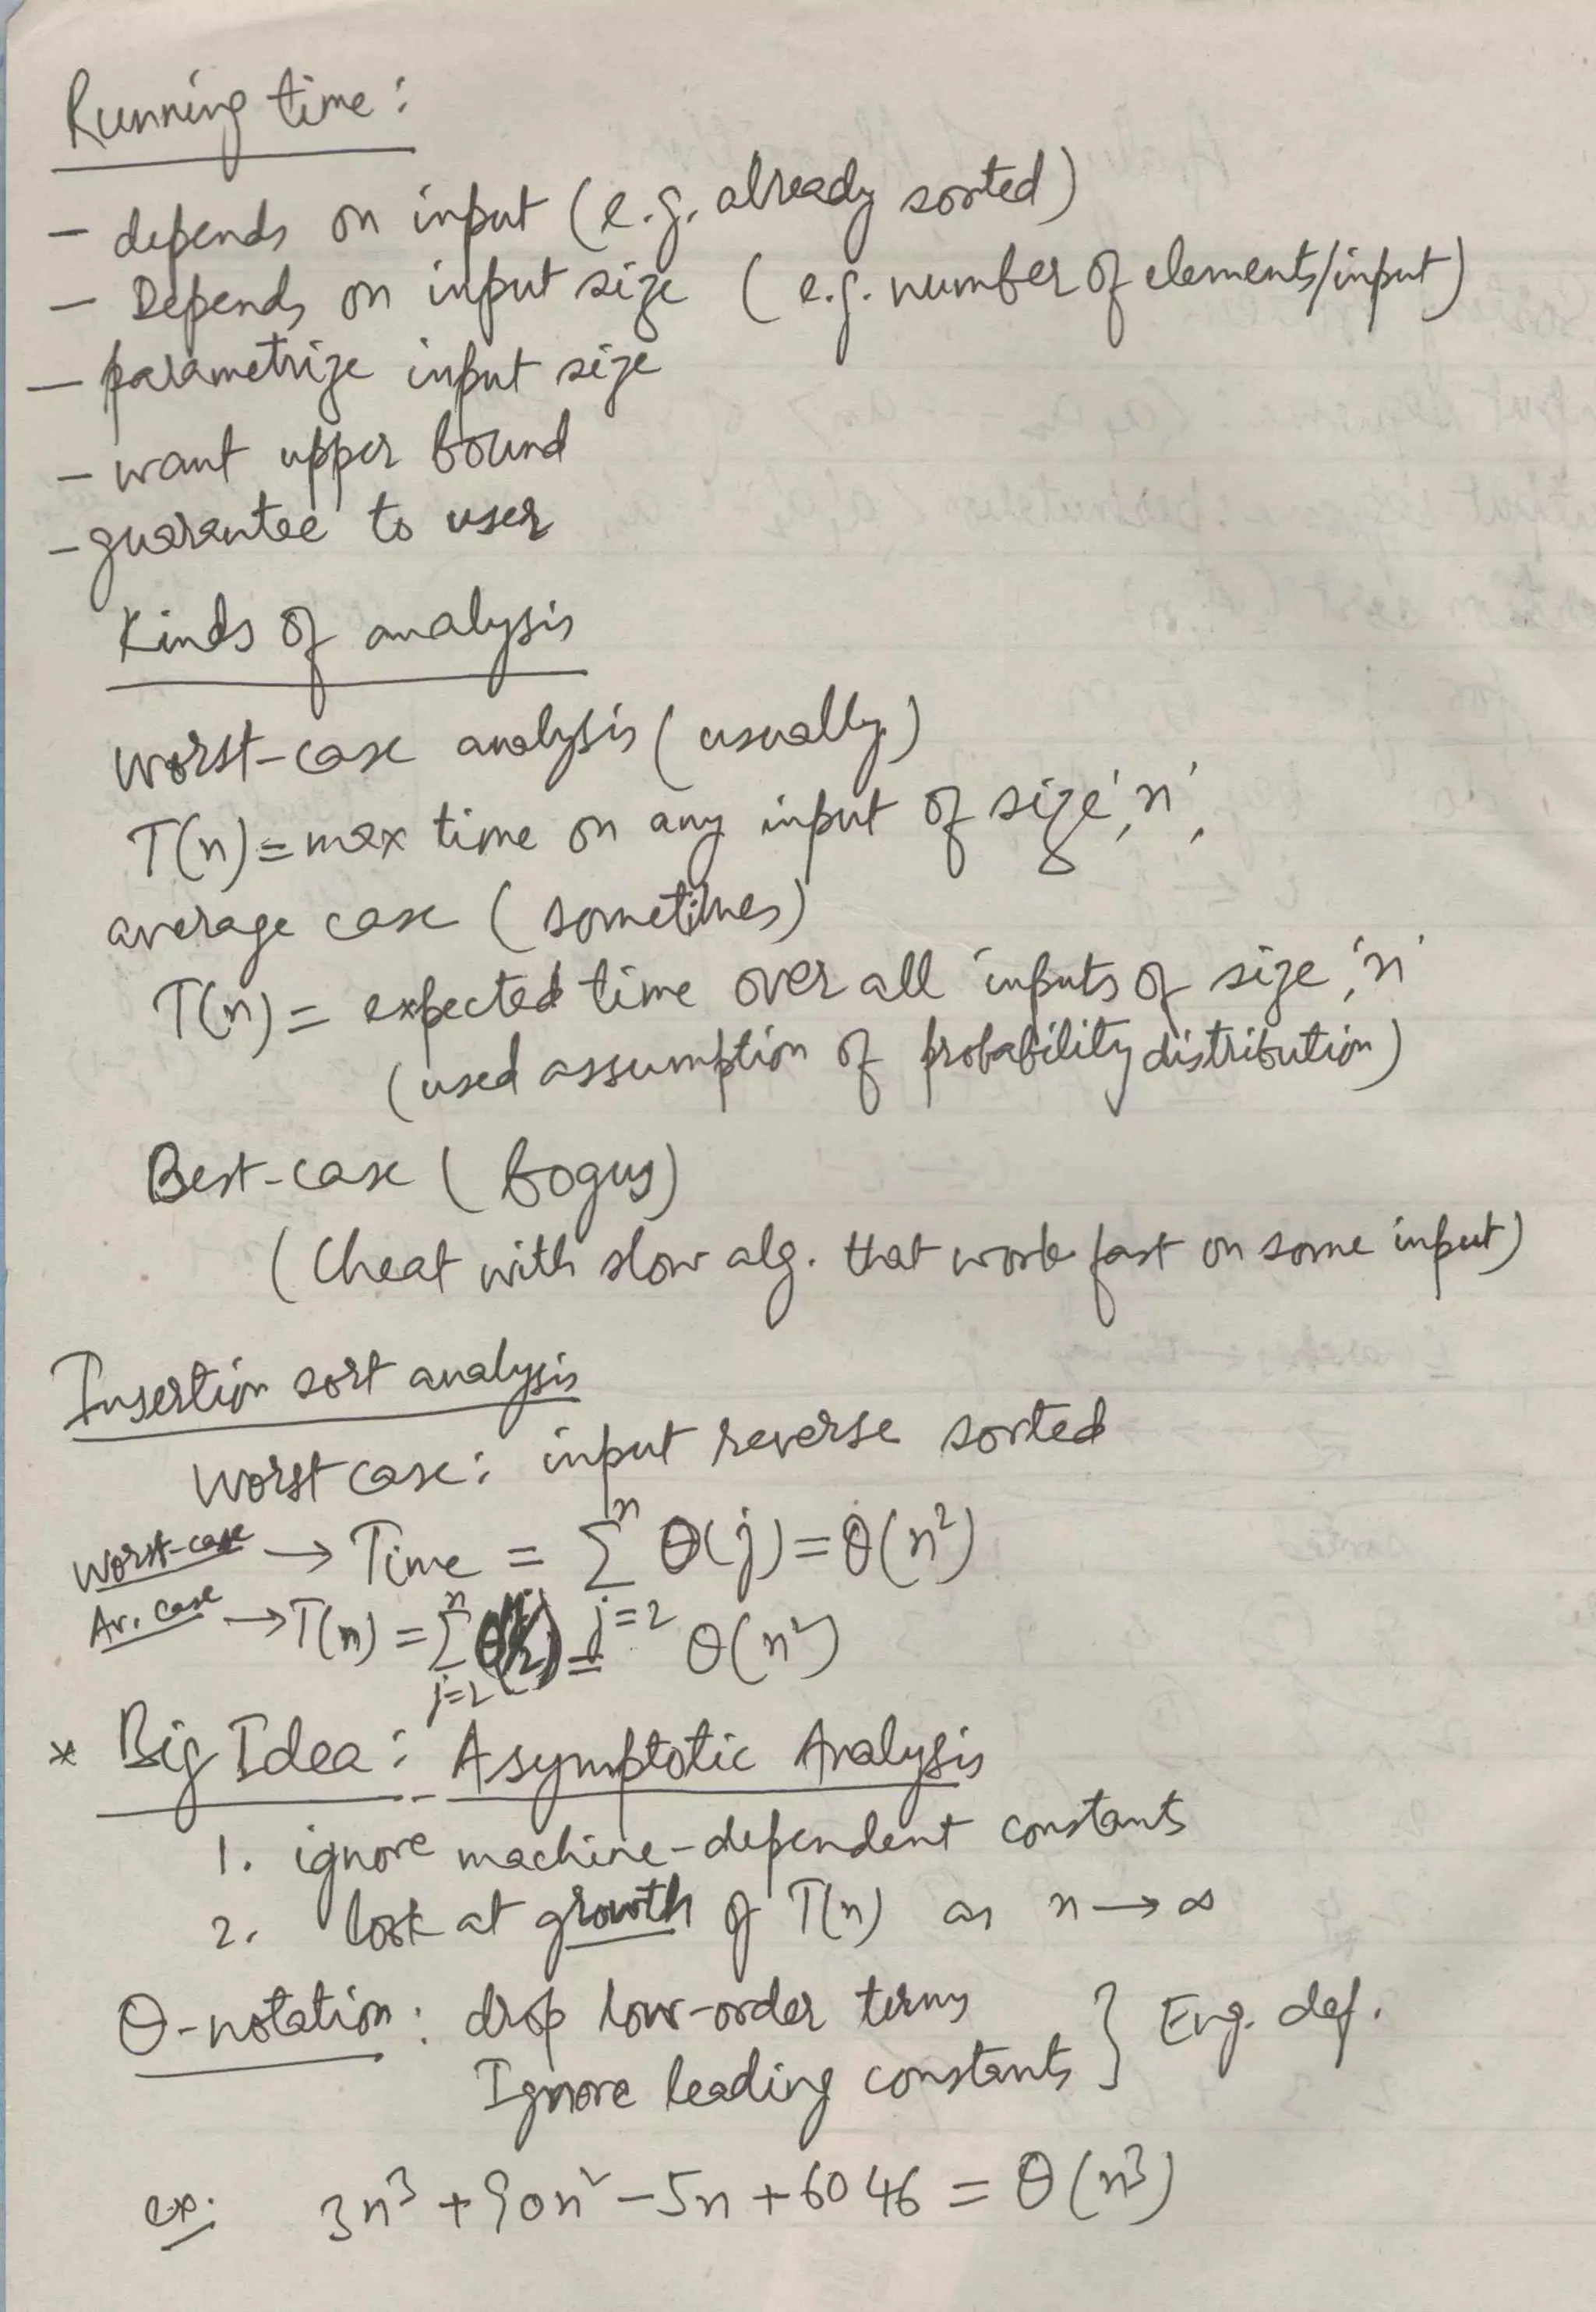 Running time:
- depends on input (e.g. already sorted)
- Depends on input size (e.g. number of elements/input)
- parametrize input size
- want upper bound
- guarantee to user
Kinds of analysis
Worst-case analysis (usually)
T(n) = max time on any input of size 'n',
average case (sometimes)
T(n) = expected time over all inputs of size 'n'
(used assumption of probability distribution)
Best-case (bogus)
(Cheat with slow alg. that work fast on some input)
Insertion sort analysis
Worst case: input reverse sorted
Worst-case → Time = ∑ⁿ_{j=2} Θ(j) = Θ(n²)
Av. case → T(n) = ∑ⁿ_{j=2} = Θ(n²)
* Big Idea: Asymptotic Analysis
1. ignore machine-dependent constants
2. look at growth of T(n) as n → ∞
Θ-notation: drop low-order terms
Ignore leading constants } Eng. def.
ex: 3n³ + 90n² - 5n + 6046 = Θ(n³)